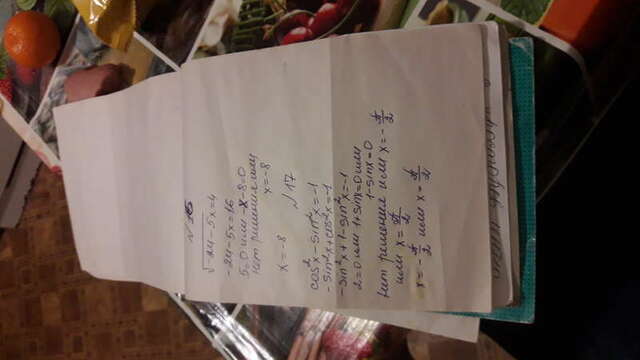 № 16
√-24-5x=4
-24-5x=16
5=0 или -x-8=0
нет решения или
x=-8
x=-8
№ 17
cos²x-sin²x=-1
-sin²x+cos²x=-1
-sin²x+1-sin²x=-1
2=0 или 1+sinx=0 или
1-sinx=0
Нет решения или x=-π/2
или x=π/2
x=-π/2 или x=π/2